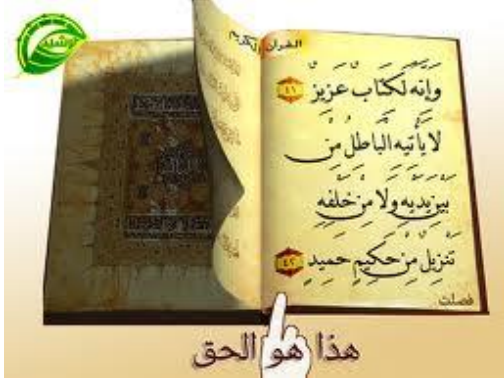 القرآن الكريم
وَإِنَّهُ لَكِتَابٌ عَزِيزٌ ٤١
لَا يَأْتِيهِ الْبَاطِلُ مِن
بَيْنِ يَدَيْهِ وَلَا مِنْ خَلْفِهِ
تَنزِيلٌ مِنْ حَكِيمٍ حَمِيدٍ ٤٢
فصلت
هذا هو الحق